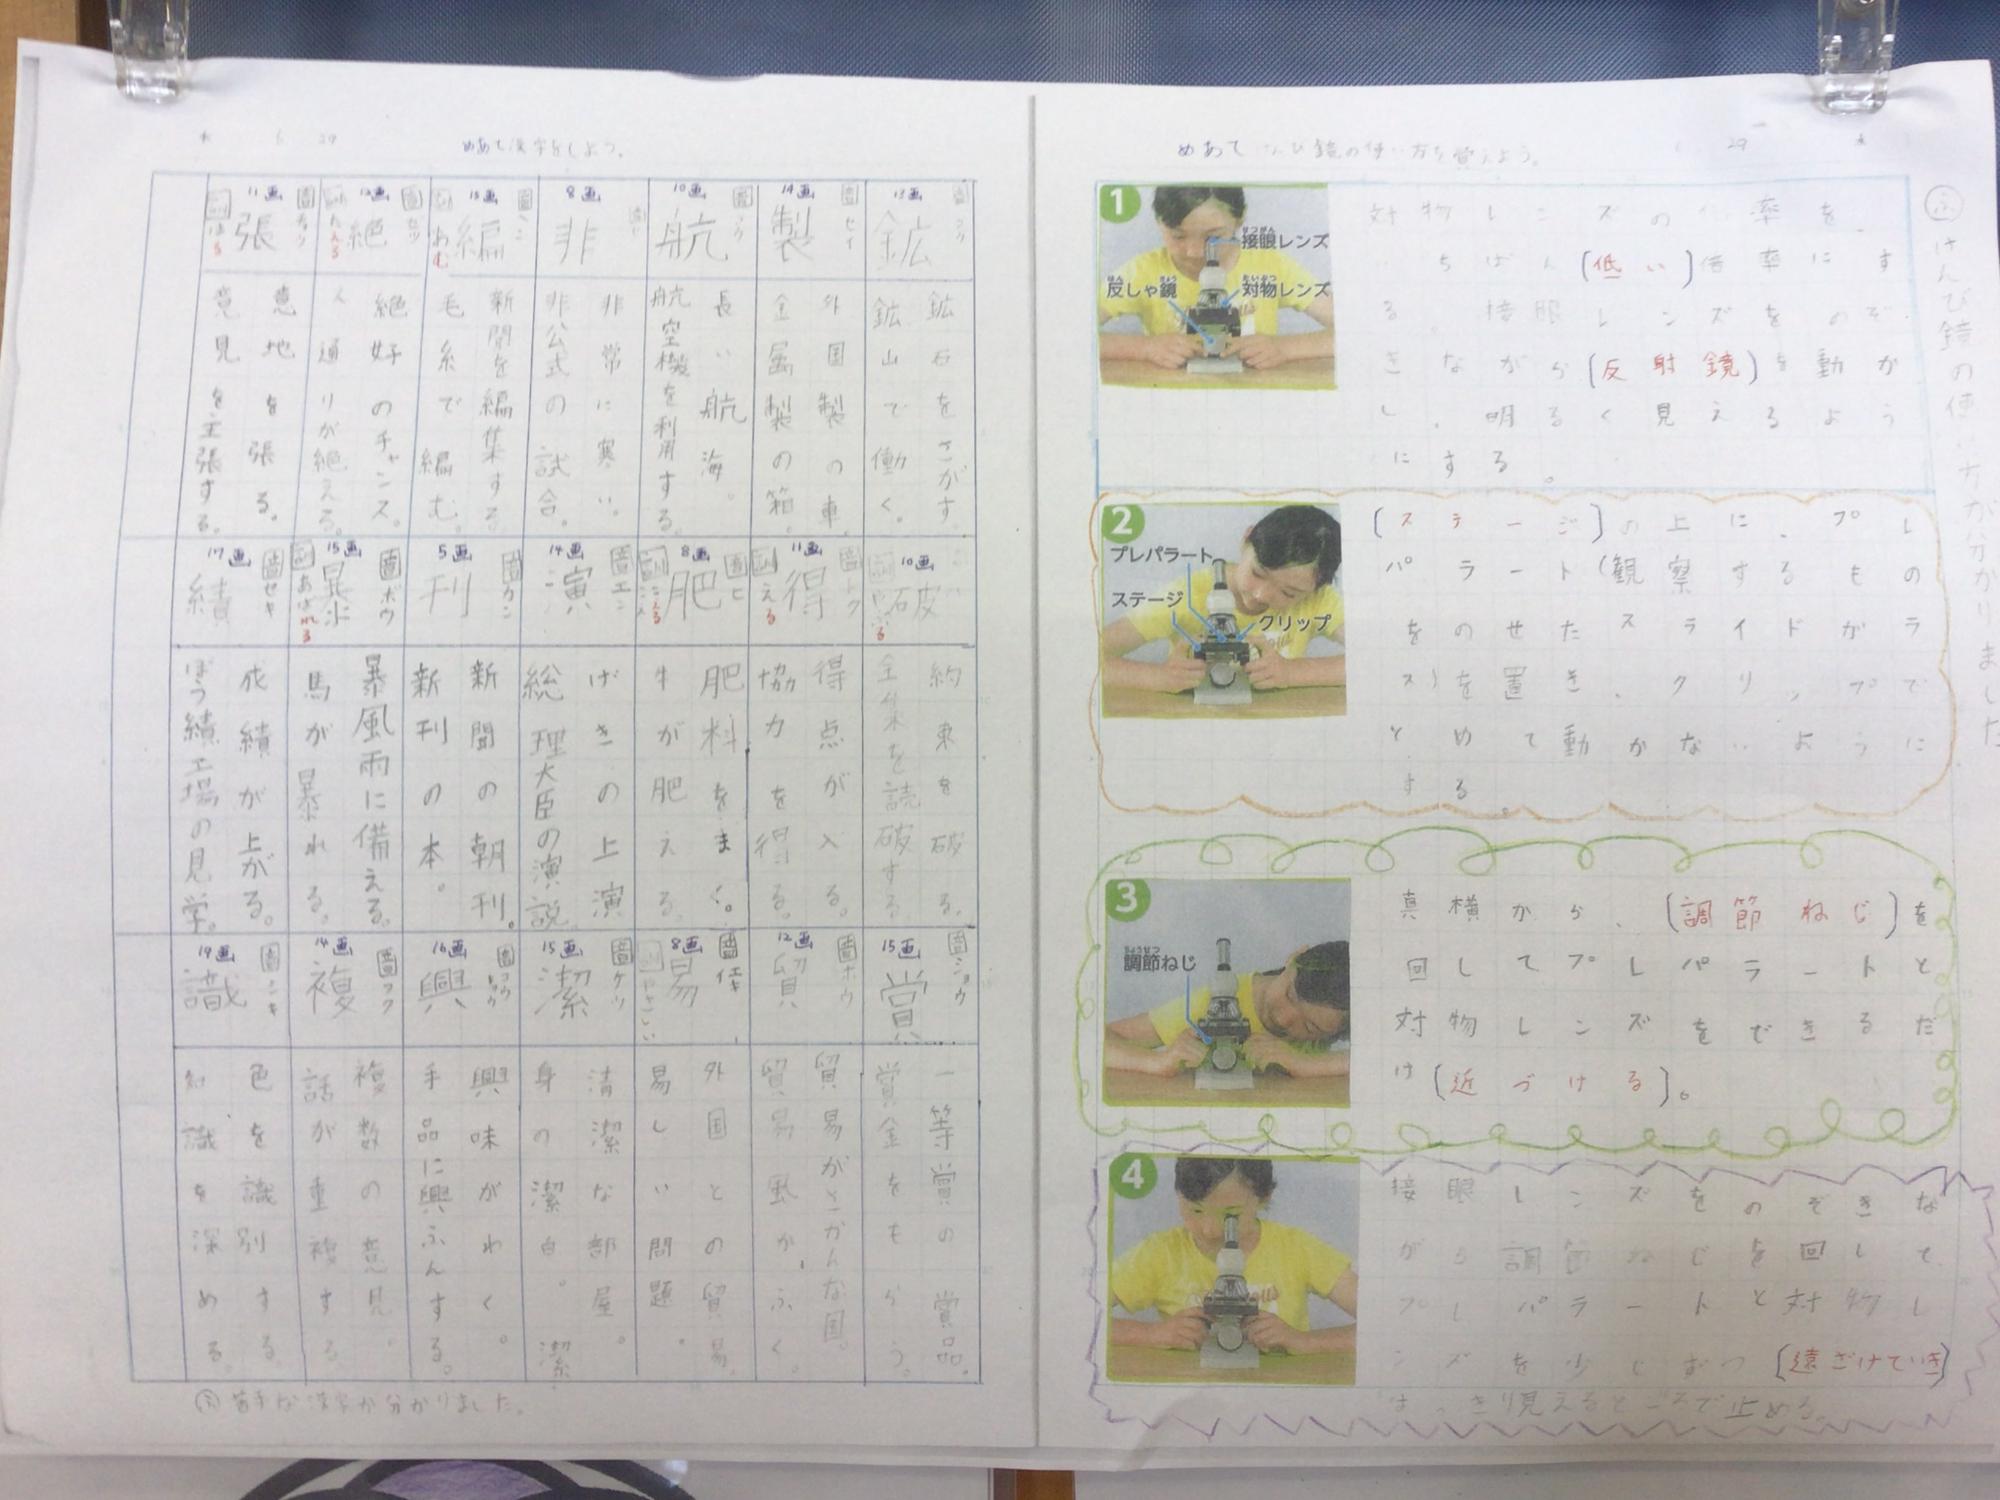 木 6 29
めあて漢字をしよう。
13画
鉱
鉱石をさがす。
鉱山で働く。
14画
音 セイ
製
外国製の車。
金属製の箱。
10画
航
長い航海。
航空機を利用する。
8画
非
非常に寒い。
非公式の試合。
15画
編
あむ
新聞を編集する。
毛糸で編む。
12画
絶
たえる
絶好のチャンス。
人通りが絶える。
11画
張
はる
意地を張る。
意見を主張する。
10画
破
約束を破る。
全集を読破する。
11画
音 トク
得
える
得点が入る。
協力を得る。
8画
音 ヒ
肥
こえる
肥料をまく。
牛が肥える。
14画
音 エン
演
げきの上演
総理大臣の演説
5画
音 カン
刊
新聞の朝刊。
新刊の本。
15画
音 ボウ
暴
訓 あばれる
暴風雨に備える。
馬が暴れる。
17画
音 セキ
績
成績が上がる。
ぼう績工場の見学。
15画
音 ショウ
賞
一等賞の賞品。
賞金をもらう。
12画
音 ボウ
貿
貿易がさかんな国。
貿易風がふく。
8画
音 エキ
易
やさしい
外国との貿易。
易しい問題。
15画
音 ケツ
潔
清潔な部屋。
身の潔白。潔
16画
音 コウ キョウ
興
興味がわく。
手品に興ふんする。
14画
音 フク
複
複数の意見。
話が重複する
19画
音 シキ
識
色を識別する。
知識を深める。
ふ 苦手な漢字が分かりました。
めあて けんび鏡の使い方を覚えよう。
29 木
1
接眼レンズ
せつがん
反しゃ鏡
はん きょう
対物レンズ
たいぶつ
対物レンズの倍率を、
いちばん(低い)倍率にす
る。接眼レンズをのぞ
きながら(反射鏡)を動か
し、明るく見えるよう
にする。
2
プレパラート
ステージ
クリップ
(ステージ)の上に、プレ
パラート(観察するもの
をのせたスライドガラ
ス)を置き、クリップで
とめて動かないように
する。
3
ちょうせつ
調節ねじ
真横から、(調節ねじ)を
回してプレパラートと
対物レンズをできるだ
け(近づける)。
4
接眼レンズをのぞきな
がら調節ねじを回して
プレパラートと対物レ
ンズを少しずつ(遠ざけていき)
はっきり見えるところで止める。
ふ けんび鏡の使い方が分かりました